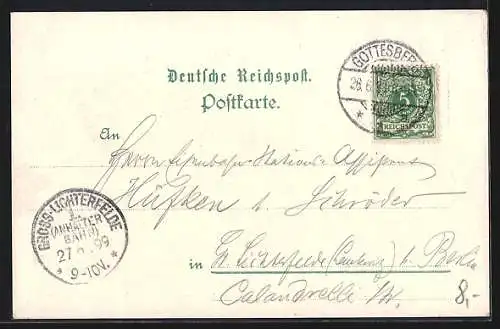 Deutsche Reichspost.
Postkarte.
GOTTESBERG
26.6.
5
REICHSPOST
An
Herrn Eisenbahn-Stations-Assistent
Hüfken b. Schröder
GROSS-LICHTERFELDE
(ANHALTER
BAHN)
27 99
9-10V.
in Gr. Lichterfelde b. Berlin
Calandrelli
8,-